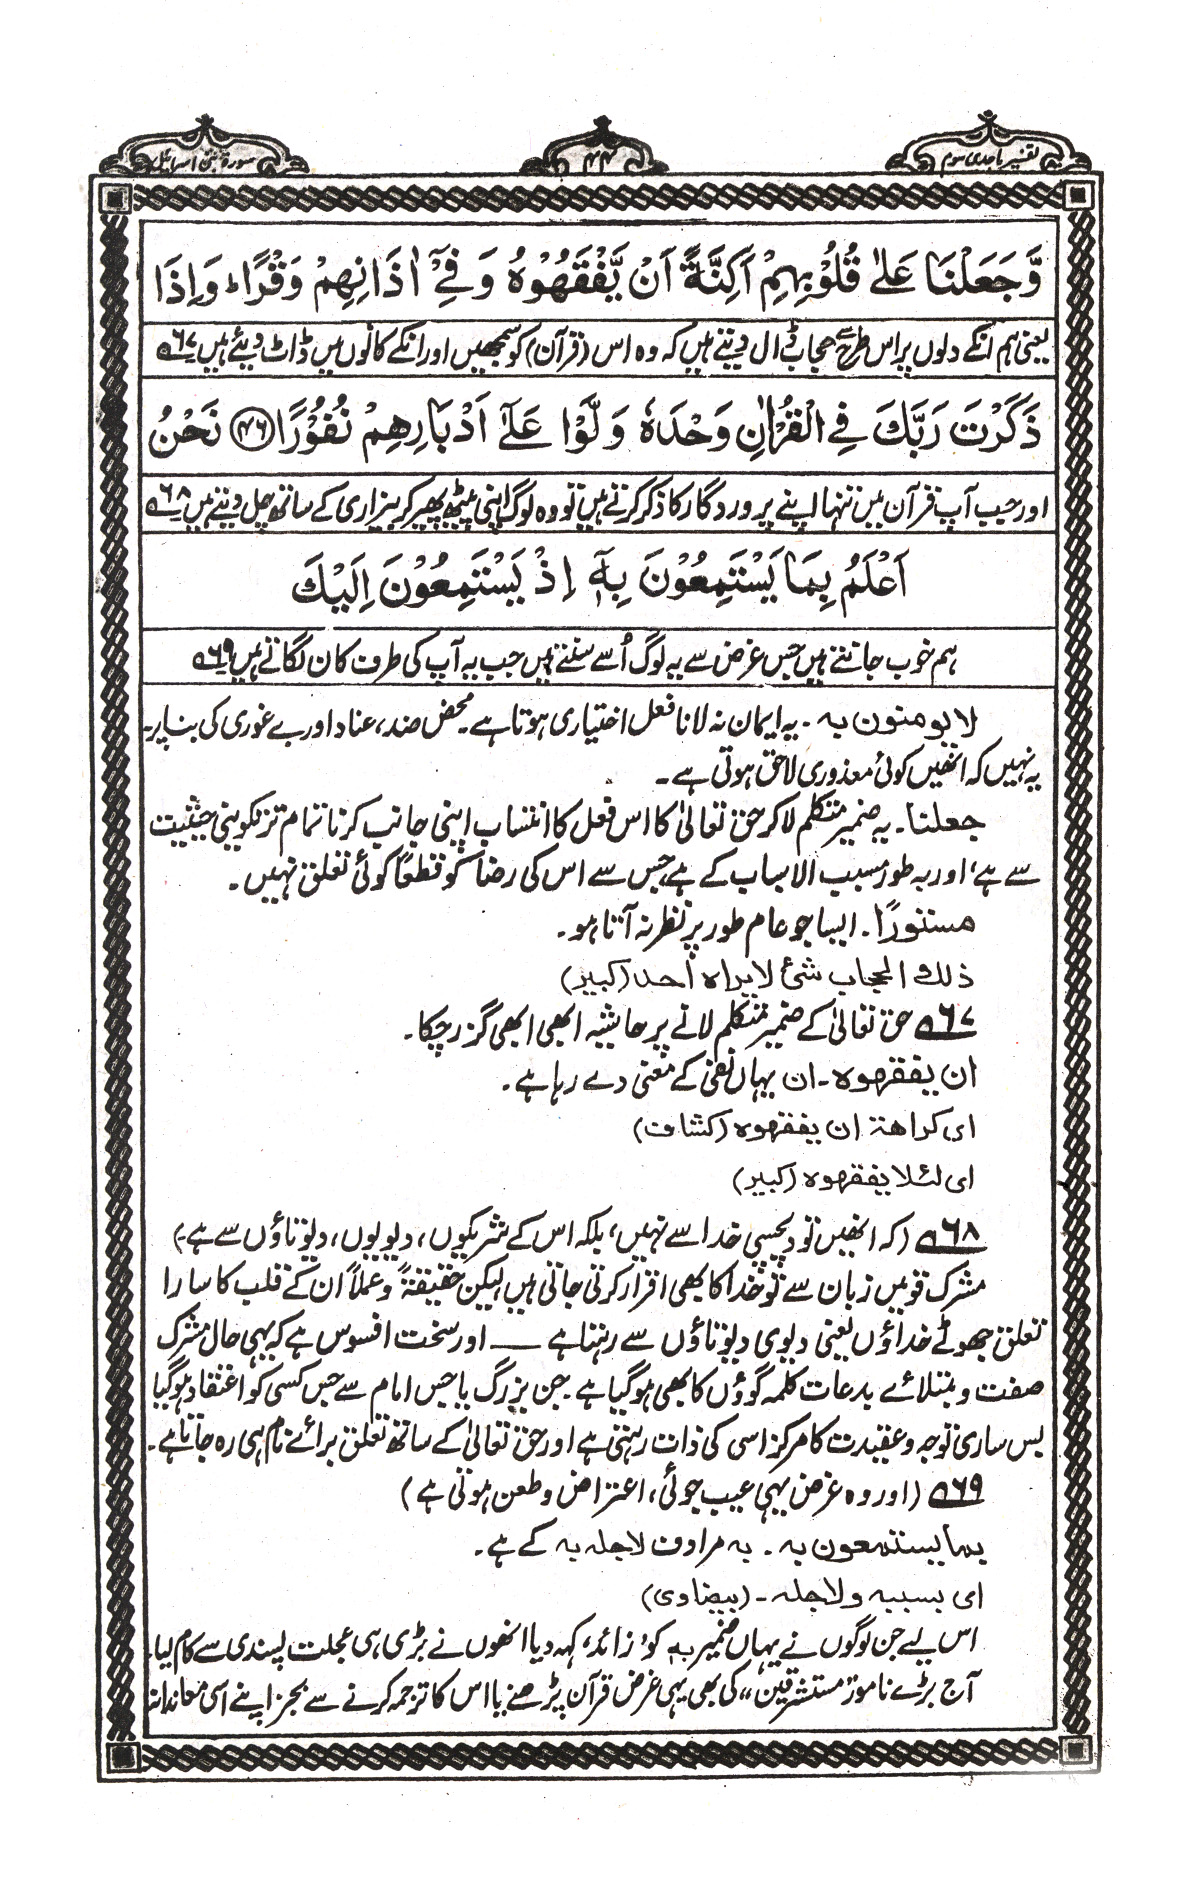 تفسیر ماجدی سوم
۴۴
سورۃ بنی اسرائیل
وَّجَعَلْنَا عَلٰى قُلُوْبِهِمْ اَكِنَّةً اَنْ يَّفْقَهُوْهُ وَفِيْٓ اٰذَانِهِمْ وَقْرًا ۭ وَاِذَا
یعنی ہم انکے دلوں پر اس طرح سے حجاب ڈال دیتے ہیں کہ وہ اس (قرآن) کو سمجھیں اور انکے کانوں میں ڈاٹ دیئے ہیں ۶۷؎
ذَكَرْتَ رَبَّكَ فِي الْقُرْاٰنِ وَحْدَهٗ وَلَّوْا عَلٰٓى اَدْبَارِهِمْ نُفُوْرًا ﴿۴۶﴾ نَحْنُ
اور جب آپ قرآن میں تنہا اپنے پروردگار کا ذکر کرتے ہیں تو وہ لوگ اپنی پیٹھ پھیر کر بیزاری کے ساتھ چل دیتے ہیں ۶۸؎
اَعْلَمُ بِمَا يَسْتَمِعُوْنَ بِهٖٓ اِذْ يَسْتَمِعُوْنَ اِلَيْكَ
ہم خوب جانتے ہیں جس غرض سے یہ لوگ اُسے سنتے ہیں جب یہ آپ کی طرف کان لگاتے ہیں ۶۹؎
لا یومنون بہ ۔ یہ ایمان نہ لانا فعل اختیاری ہوتا ہے۔ محض ضد، عناد اور بے غوری کی بنا پر۔
یہ نہیں کہ انھیں کوئی معذوری لاحق ہوتی ہے۔
جعلنا ۔ یہ ضمیر متکلم لا کر حق تعالیٰ کا اس فعل کا انتساب اپنی جانب کرنا تمام تر تکوینی حیثیت
سے ہے، اور بہ طور مسبب الاسباب کے ہے جس سے اس کی رضا کو قطعاً کوئی تعلق نہیں۔
مستورًا ۔ ایسا جو عام طور پر نظر نہ آتا ہو۔
ذلك الحجاب شئ لا یراہ أحد (کبیر)
۶۷؎ حق تعالیٰ کے ضمیر متکلم لانے پر حاشیہ ابھی ابھی گزر چکا۔
ان یفقھوہ ۔ ان یہاں نفی کے معنی دے رہا ہے۔
ای کراھۃ ان یفقھوہ (کشاف)
ای لئلا یفقھوہ (کبیر)
۶۸؎ (کہ انھیں تو دلچسپی خدا سے نہیں، بلکہ اس کے شریکوں، دیویوں، دیوتاؤں سے ہے)
مشرک قومیں زبان سے تو خدا کا بھی اقرار کرتی جاتی ہیں لیکن حقیقۃً و عملاً ان کے قلب کا سارا
تعلق جھوٹے خداؤں یعنی دیوی دیوتاؤں سے رہتا ہے ـــــ اور سخت افسوس ہے کہ یہی حال مشرک
صفت و مبتلائے بدعات کلمہ گوؤں کا بھی ہو گیا ہے۔ جن بزرگ یا جس امام سے جس کسی کو اعتقاد ہو گیا
بس ساری توجہ و عقیدت کا مرکز اسی کی ذات رہتی ہے اور حق تعالیٰ کے ساتھ تعلق برائے نام ہی رہ جاتا ہے۔
۶۹؎ (اور وہ غرض یہی عیب جوئی، اعتراض و طعن ہوتی ہے)
بما یستمعون بہ ۔ بہ مرادف لاجلہ بہ کے ہے۔
ای بسببہ ولاجلہ ۔ (بیضاوی)
اس لیے جن لوگوں نے یہاں ضمیر بہ کو ’زائد‘ کہہ دیا انھوں نے بڑی ہی عجلت پسندی سے کام لیا۔
آج بڑے نامور ”مستشرقین“ کی بھی یہی غرض قرآن پڑھنے یا اس کا ترجمہ کرنے سے بجز اپنے اسی معاندانہ